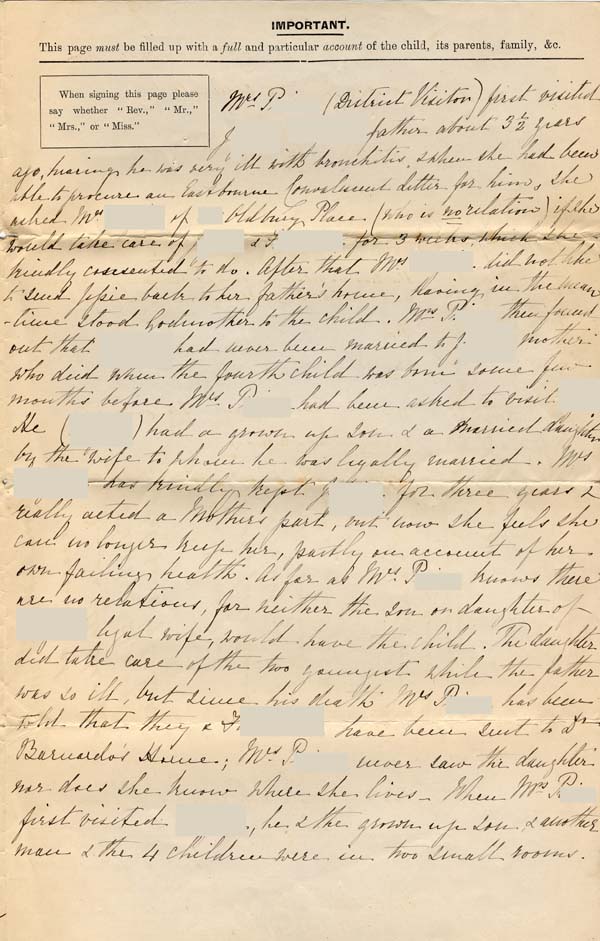 IMPORTANT.
This page must be filled up with a full and particular account of the child, its parents, family, &c.
When signing this page please
say whether "Rev.," "Mr.,"
"Mrs.," or "Miss."
Mrs P (District Visitor) first visited
J father about 3½ years
ago, hearing he was very ill with bronchitis, & when she had been
able to procure an Eastbourne Convalescent letter for him, she
asked Mrs of Oldbury Place (who is no relation) if she
would take care of & F for 3 weeks, which she
kindly consented to do. After that Mrs did not like
to send Jessie back to her father's home, having in the mean
-time stood Godmother to the child. Mrs P. then found
out that had never been married to J. mother
who died when the fourth child was born some few
months before Mrs P had been asked to visit
He ( ) had a grown up son & a married daughter
by the wife to whom he was legally married. Mrs
has kindly kept J for three years &
really acted a Mother's part, but now she feels she
can no longer keep her, partly on account of her
own failing health. As far as Mrs P knows there
are no relations, for neither the son or daughter of
legal wife, would have the child. The daughter
did take care of the two youngest while the father
was so ill, but since his death Mrs P has been
told that they & F have been sent to Dr
Barnardo's Home; Mrs P. never saw the daughter
nor does she know where she lives - When Mrs P.
first visited , he & the grown up son, & another
man & the 4 children were in two small rooms.